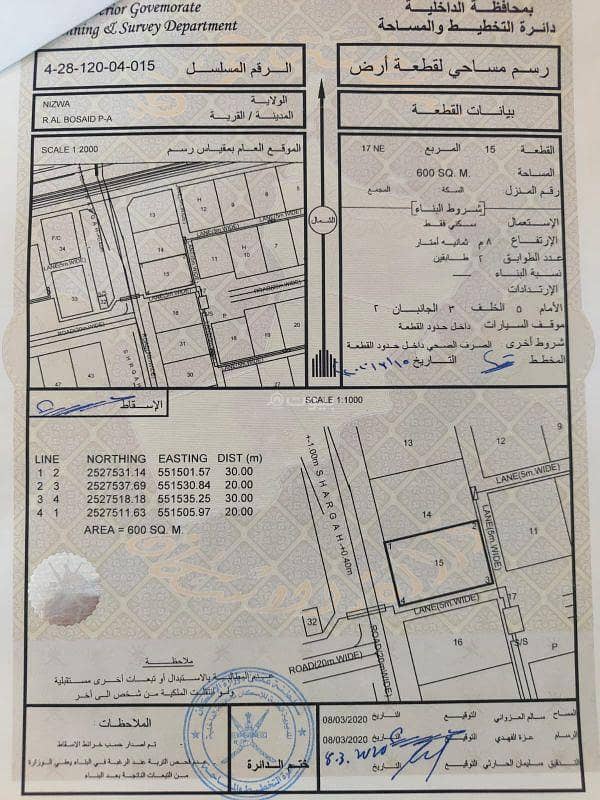 بمحافظة الداخلية
دائرة التخطيط والمساحة
Governorate
Planning & Survey Department
4-28-120-04-015
الرقم المسلسل
رسم مساحي لقطعة أرض
NIZWA
الولاية
R.AL BOSAID P-A
المدينة / القرية
بيانات القطعة
SCALE 1:2000
الموقع العام بمقياس رسم
القطعة 15 المربع 17 NE
المساحة 600 SQ. M.
رقم المنزل السكة المجمع
شروط البناء
الإستعمال سكني فقط
الإرتفاع ٨ م ثمانيه أمتار
عدد الطوابق ٢ طابقين
نسبة البناء
الإرتدادات
الأمام ٥ الخلف ٣ الجانبان ٢
موقف السيارات داخل حدود القطعة
شروط أخرى الصرف الصحي داخل حدود القطعة
المخطط التاريخ
الشمال
F/C
34
33
13
14
15
H
12
9
11
H
10
7
LANE(5m.WIDE)
LANE(5m.WIDE)
LANE(5m.WIDE)
ROAD(20m.WIDE)
SHARGAH
S/S
P
16
17
18
19
20
47
43
42
41
21
الإسقاط
SCALE 1:1000
LINE NORTHING EASTING DIST (m)
1 2 2527531.14 551501.57 30.00
2 3 2527537.69 551530.84 20.00
3 4 2527518.18 551535.25 30.00
4 1 2527511.63 551505.97 20.00
AREA = 600 SQ. M.
+-1.00m SHARGAH +0.40m
13
12
9
14
LANE(5m.WIDE)
LANE(5m.WIDE)
11
1
2
15
3
4
LANE(5m.WIDE)
32
16
S/S
P
ROAD(20m.WIDE)
ROAD(20m.WIDE)
ملاحظة
عدم المطالبة بالاستبدال أو تبعات أخرى مستقبلية
ولو انتقلت الملكية من شخص الى آخر
الملاحظات
تم اصدار حسب خرائط الاسقاط
عدم فحص التربة عند الرغبة في البناء يعفي الوزارة
من التبعات الناتجة بعد البناء
ختم الدائرة
المساح سالم العزواني التوقيع التاريخ 08/03/2020
الرسام عزة الفهدي التوقيع التاريخ 08/03/2020
التدقيق سليمان الحارثي التوقيع التاريخ 8.3.2020